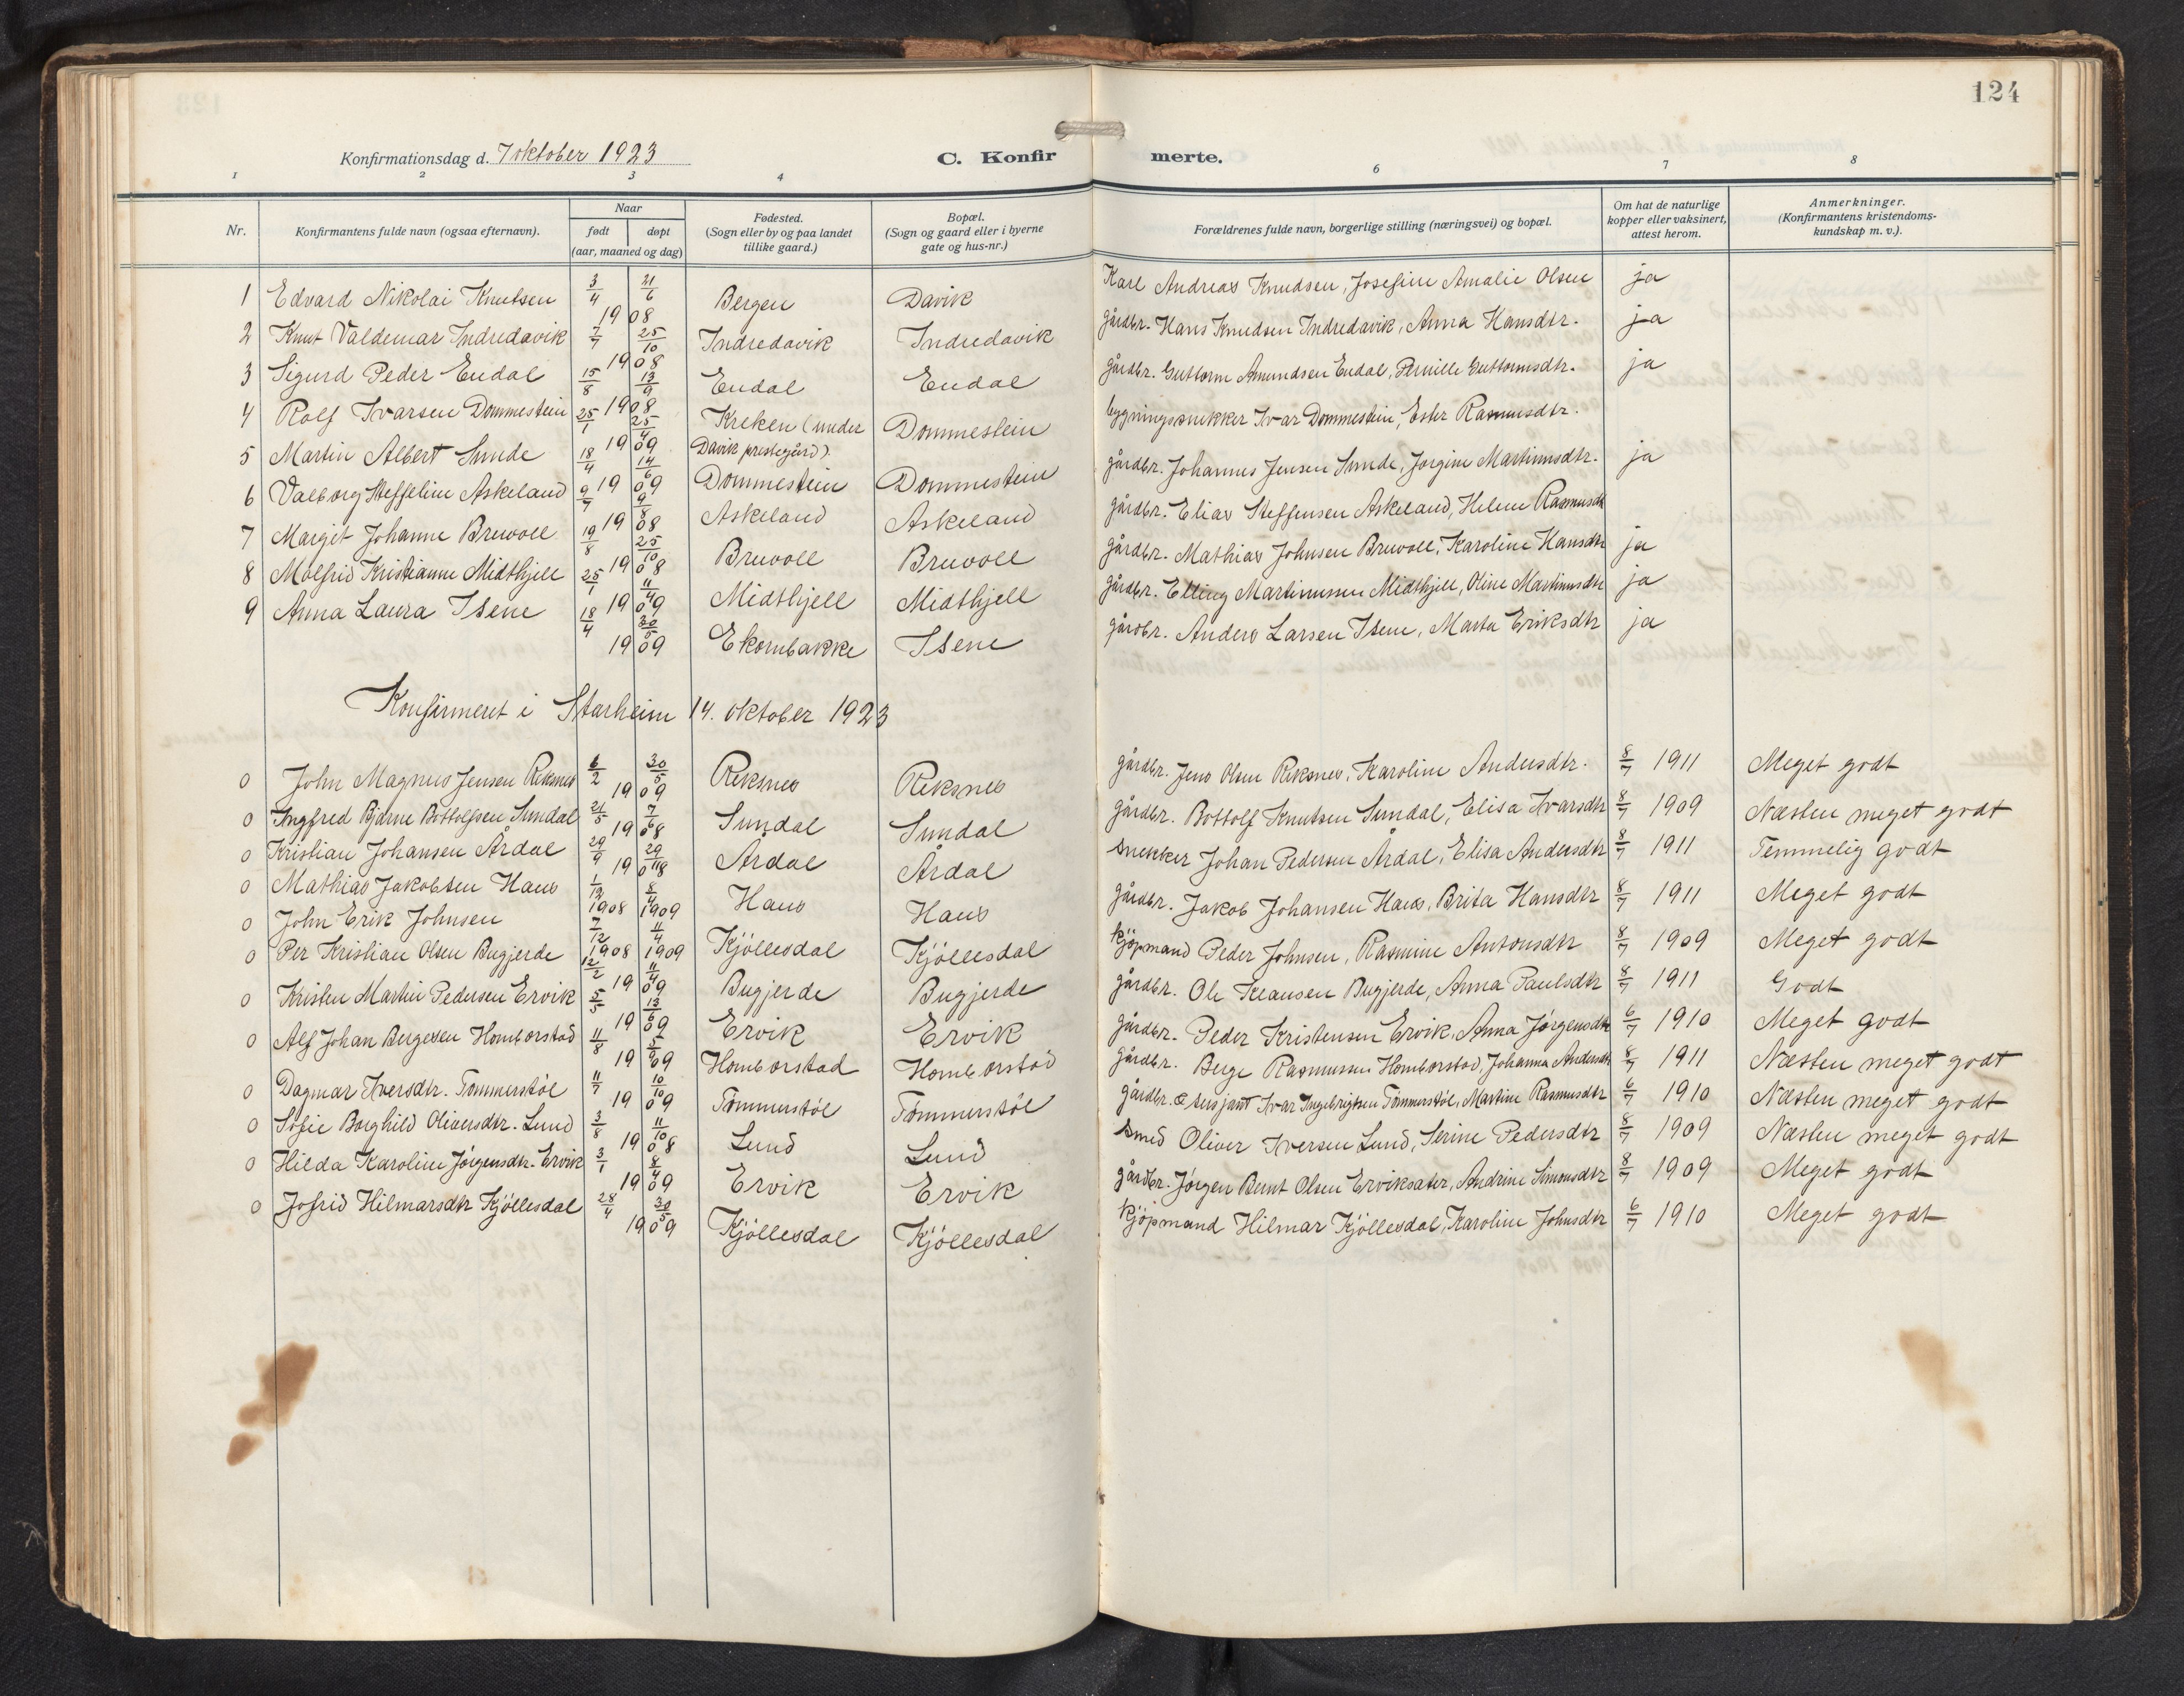 124
Konfirmationsdag d. 7 oktober 1923 C. Konfir merte.
1 2 3 4 6 7 8
Nr. Konfirmantens fulde navn (ogsaa efternavn). Naar født døpt (aar, maaned og dag) Fødested. (Sogn eller by og paa landet tillike gaard.) Bopæl. (Sogn og gaard eller i byerne gate og hus-nr.) Forældrenes fulde navn, borgerlige stilling (næringsvei) og bopæl. Om hat de naturlige kopper eller vaksinert, attest herom. Anmerkninger. (Konfirmantens kristendoms-kundskap m. v.).
1 Edvard Nikolai Knutsen 3/4 21/6 1908 Bergen Davik Karl Andreas Knudsen, Josefine Amalie Olsen ja
2 Knut Valdemar Indredavik 7/7 25/10 1908 Indredavik Indredavik gårdbr. Hans Knudsen Indredavik, Anna Hansdtr. ja
3 Sigurd Peder Endal 15/8 13/9 1908 Endal Endal gårdbr. Guttorm Amundsen Endal, Pernille Guttormsdtr. ja
4 Rolf Ivarsen Dommestein 25/1 25/4 1909 Kreken (under Davik prestegård). Dommestein bygningssnekker Ivar Dommestein, Ester Rasmusdtr.
5 Martin Albert Sunde 18/4 14/6 1909 Dommestein Dommestein gårdbr. Johannes Jensen Sunde, Jørgine Martinusdtr. ja
6 Valborg Steffeline Askeland 9/7 9/8 1908 Askeland Askeland gårdbr. Elias Steffensen Askeland, Helene Rasmusdtr
7 Margit Johanne Bruvoll 19/8 25/10 1908 Bruvoll Bruvoll gårdbr. Mathias Johnsen Bruvoll, Karoline Hansdtr ja
8 Malfrid Kristianne Midthjell 25/1 11/4 1909 Midthjell Midthjell gårdbr. Elling Martinussen Midthjell, Oline Martinusdtr ja
9 Anna Laura Isene 18/4 30/5 1909 Ekornbakke Isene gårdbr. Anders Larsen Isene, Marta Eriksdtr ja
Konfirmeret i Starheim 14. oktober 1923
0 John Magnus Jensen Reksnes 6/2 30/5 1909 Reksnes Reksnes gårdbr. Jens Olsen Reksnes, Karoline Andersdtr. 8/7 1911 Meget godt
0 Ingfred Bjarne Bottolfsen Sundal 21/5 7/6 1908 Sundal Sundal gårdbr. Bottolf Knutsen Sundal, Elisa Ivarsdtr 8/7 1909 Næsten meget godt
0 Kristian Johansen Årdal 29/9 29/11 1908 Årdal Årdal snekker Johan Pedersen Årdal, Elisa Andersdtr 8/7 1911 Temmelig godt
0 Mathias Jakobsen Haus 1/12 1908 8/4 1909 Haus Haus gårdbr. Jakob Johansen Haus, Brita Hansdtr 8/7 1911 Meget godt
0 John Erik Johnsen 7/12 1908 11/4 1909 Kjöllesdal Kjöllesdal kjöpmand Peder Johnsen, Rasmine Antonsdtr 8/7 1909 Meget godt
0 Per Kristian Olsen Bugjerde 12/2 11/4 1909 Bugjerde Bugjerde gårdbr. Ole Klausen Bugjerde, Anna Paulsdtr 8/7 1911 Godt
0 Kristen Martin Pedersen Ervik 5/5 13/6 1909 Ervik Ervik gårdbr. Peder Kristensen Ervik, Anna Jörgensdtr 6/7 1910 Meget godt
0 Alf Johan Bergesen Hombor​stad 11/8 5/9 1909 Homborstad Homborstad gårdbr. Berge Rasmussen Homborstad, Johanna Andersdtr 8/7 1911 Næsten meget godt
0 Dagmar Iversdtr. Tömmerstöl 11/7 10/10 1909 Tömmerstöl Tömmerstöl gårdbr. & sersjant Ivar Ingebrigtsen Tömmerstöl, Martine Rasmusdtr 6/7 1910 Næsten meget godt
0 Sofie Borghild Oliversdtr. Lund 3/8 11/10 1908 Lund Lund smed Oliver Iversen Lund, Serine Pedersdtr 8/7 1909 Næsten meget godt
0 Hilda Karoline Jörgensdtr. Ervik 3/1 8/4 1909 Ervik Ervik gårdbr. Jörgen Bernt Olsen Erviksæter, Andrine Simonsdtr 8/7 1909 Meget godt
0 Jofrid Hilmarsdtr Kjöllesdal 28/4 30/5 1909 Kjöllesdal Kjöllesdal kjöpmand Hilmar Kjöllesdal, Karoline Johnsdtr 6/7 1910 Meget godt